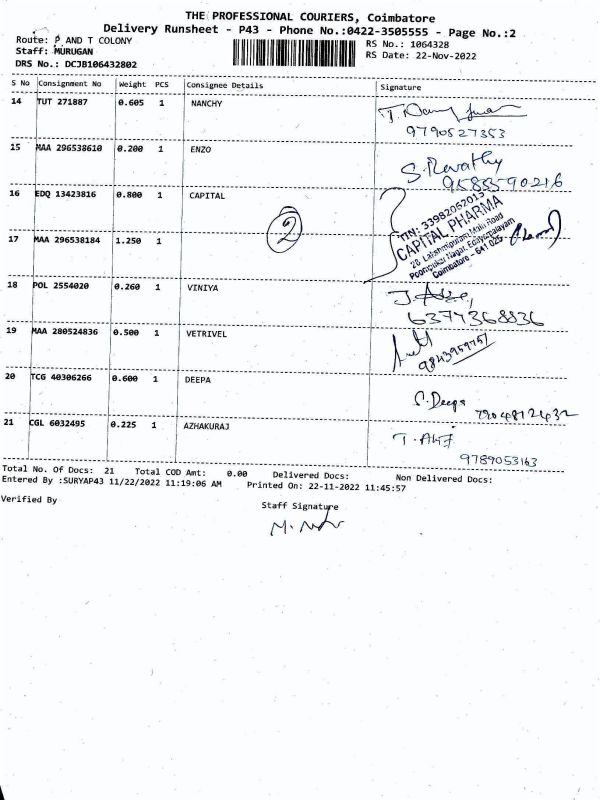 THE PROFESSIONAL COURIERS, Coimbatore
Delivery Runsheet - P43 - Phone No.:0422-3505555 - Page No.:2
Route: P AND T COLONY
RS No.: 1064328
Staff: MURUGAN
RS Date: 22-Nov-2022
DRS No.: DCJB106432802
S No Consignment No Weight PCS Consignee Details Signature
14 TUT 271887 0.605 1 NANCHY
9790527353
15 MAA 296538610 0.200 1 ENZO
S. Revathy
9585590216
16 EDQ 13423816 0.800 1 CAPITAL
TIN: 33982062015
CAPITAL PHARMA
20 Lakshmipuram Main Road
Poompukar Nagar, Edayarpalayam
Coimbatore - 641 025
2
17 MAA 296538184 1.250 1
18 POL 2554020 0.260 1 VINIYA
6377368836
19 MAA 280524836 0.500 1 VETRIVEL
9843959757
20 TCG 40306266 0.600 1 DEEPA
S. Deepa
7904812432
21 CGL 6032495 0.225 1 AZHAKURAJ
9789053163
Total No. Of Docs: 21 Total COD Amt: 0.00 Delivered Docs: Non Delivered Docs:
Entered By :SURYAP43 11/22/2022 11:19:06 AM Printed On: 22-11-2022 11:45:57
Verified By
Staff Signature